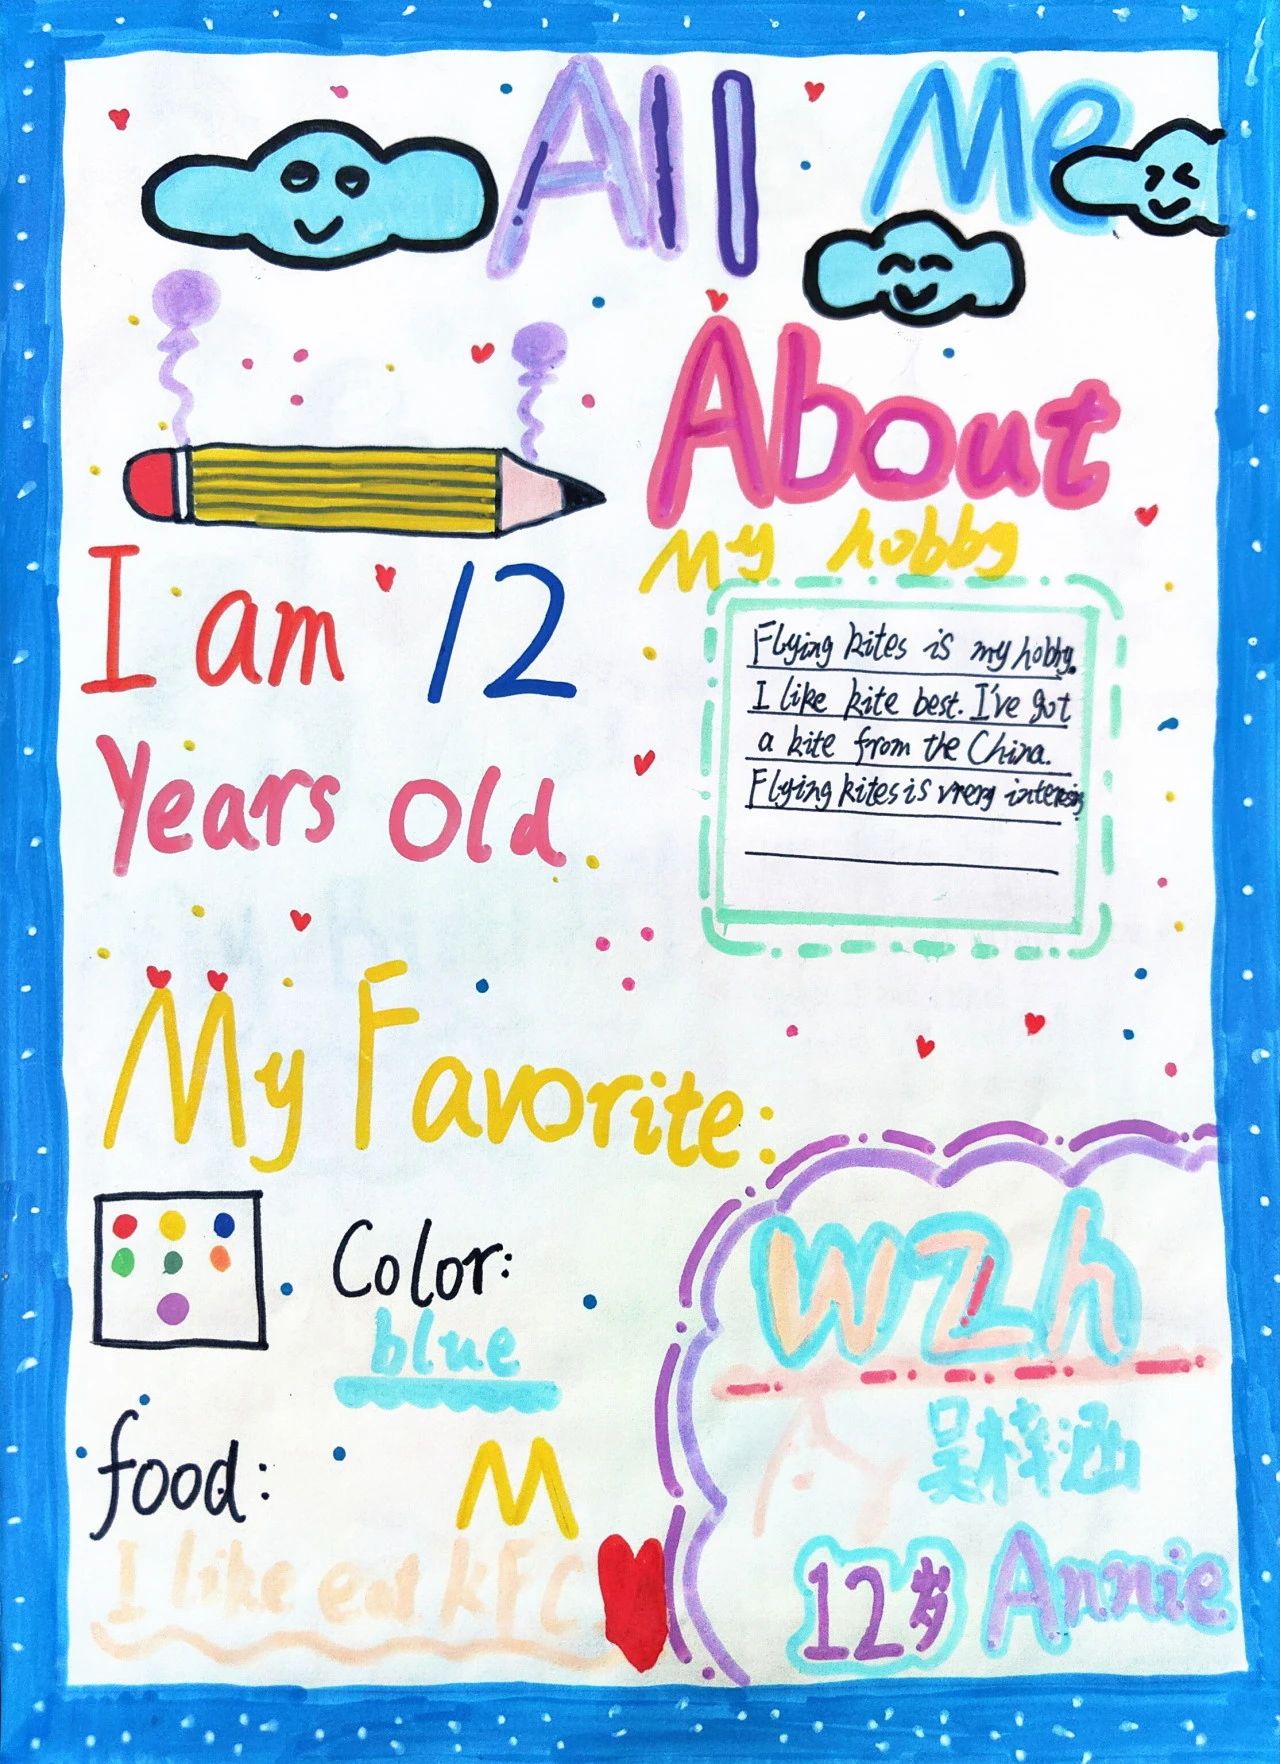 All Me
About
My hobby
Flying kites is my hobby.
I like kite best. I've got
a kite from the China.
Flying kites is vrery
I am 12
Years old
My Favorite:
Color:
blue
food: M
I like eat KFC
wzh
吴梓涵
12岁 Annie